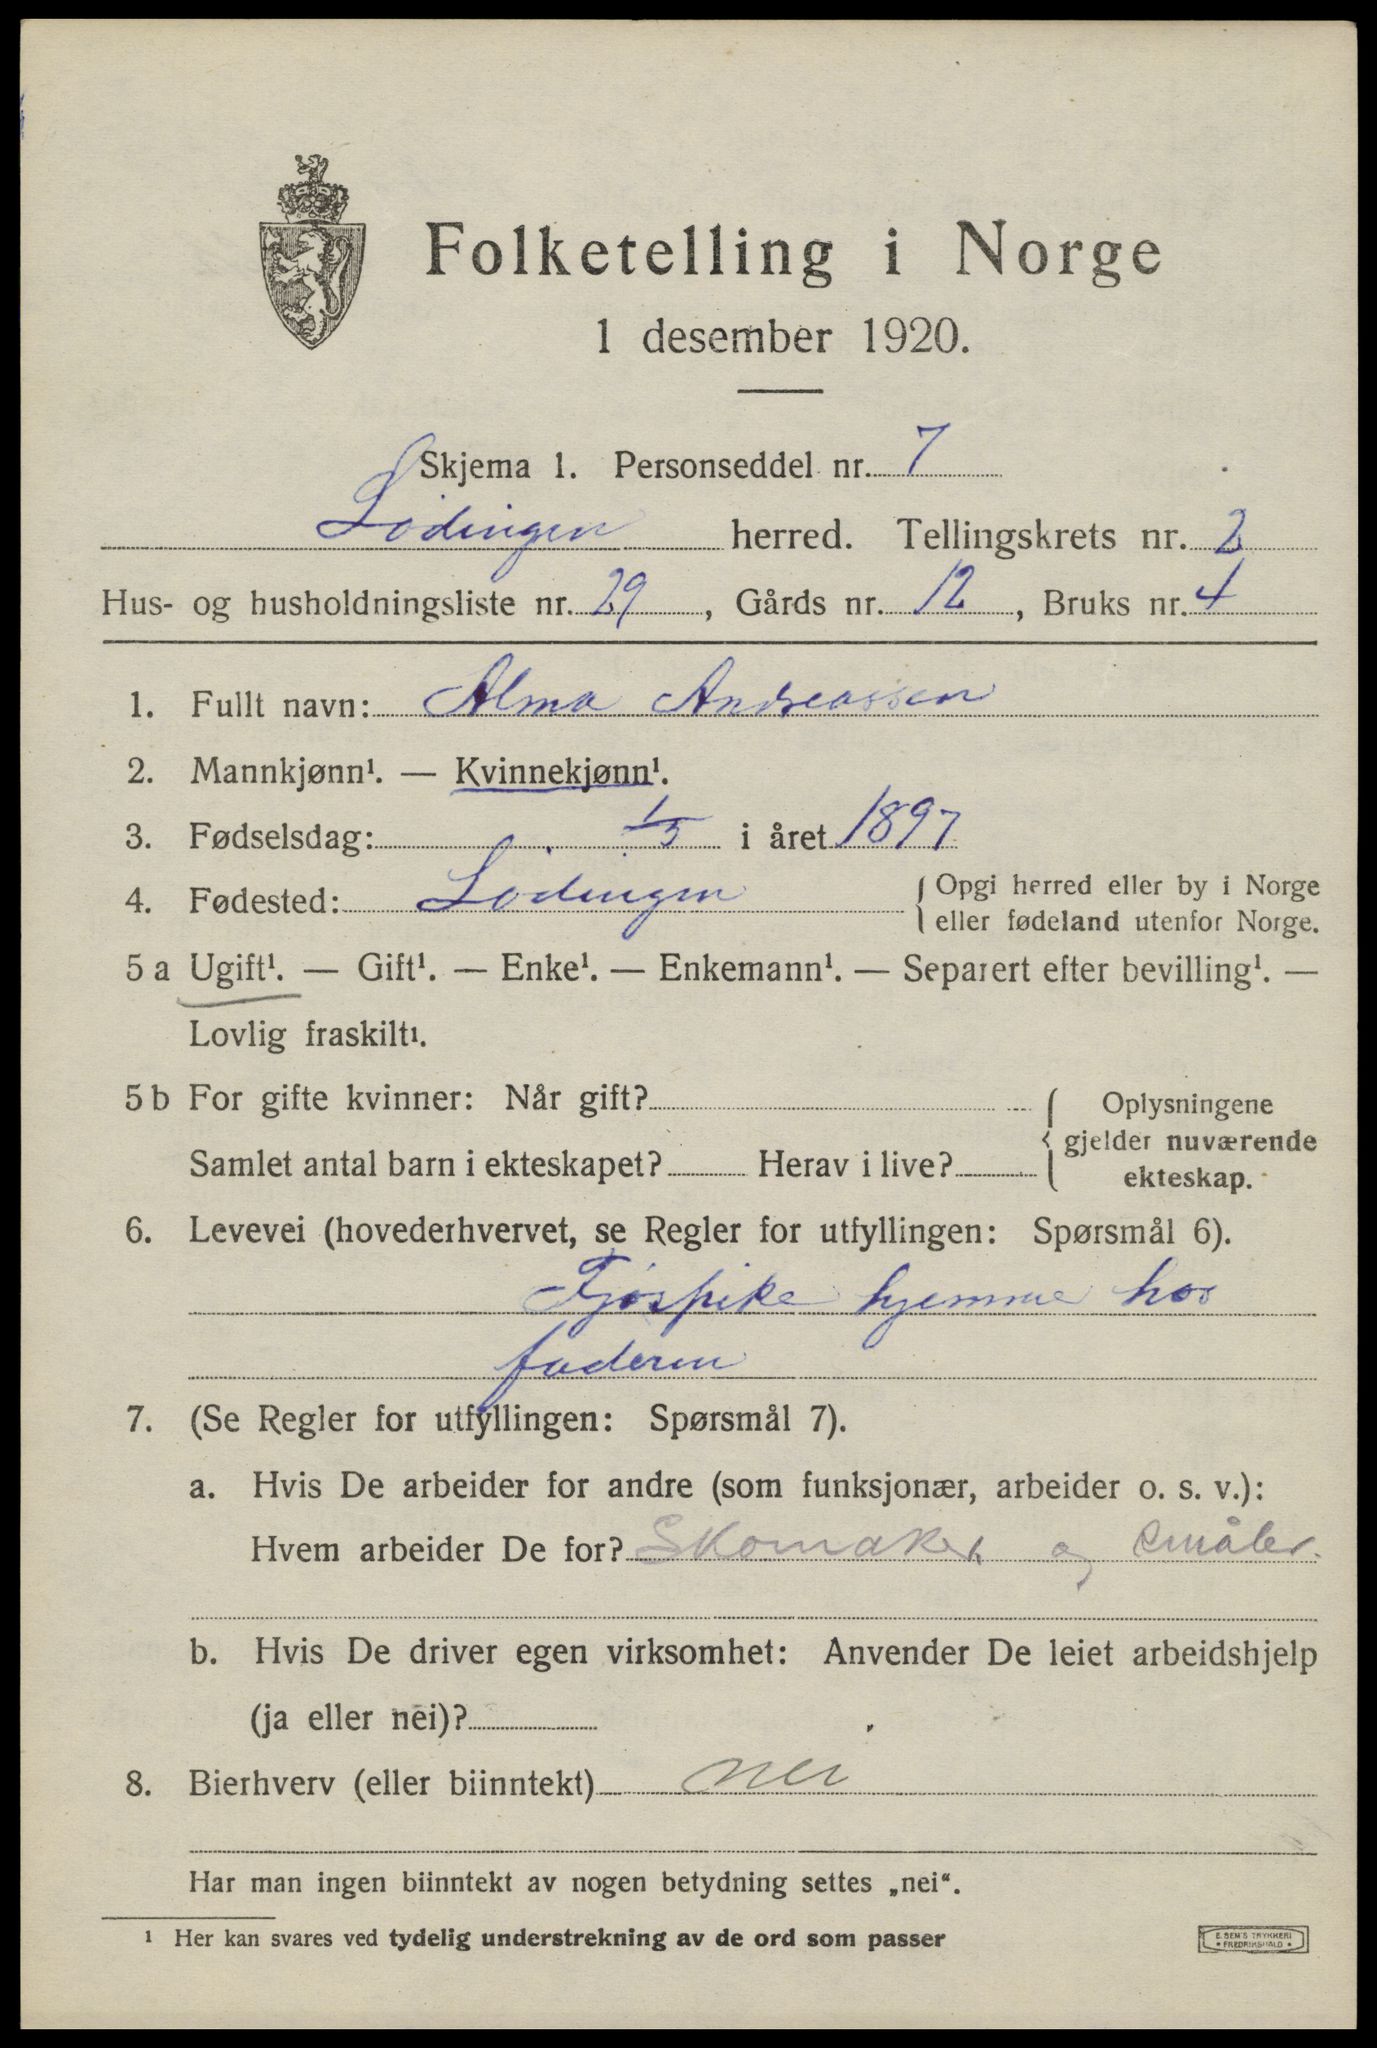 Folketelling i Norge
1 desember 1920.
Skjema 1. Personseddel nr. 7
Lödingen herred. Tellingskrets nr. 2
Hus- og husholdningsliste nr. 29, Gårds nr. 12, Bruks nr. 4
1. Fullt navn: Alma Andreassen
2. Mannkjønn¹. — Kvinnekjønn¹.
3. Fødselsdag: 1/5 i året 1897
4. Fødested: Lödingen { Opgi herred eller by i Norge
eller fødeland utenfor Norge.
5 a Ugift¹. — Gift¹. — Enke¹. — Enkemann¹. — Separert efter bevilling¹. —
Lovlig fraskilt¹.
5 b For gifte kvinner: Når gift? { Oplysningene
gjelder nuværende
Samlet antal barn i ekteskapet? Herav i live?
ekteskap.
6. Levevei (hovederhvervet, se Regler for utfyllingen: Spørsmål 6).
Fjøspike hjemme hos
faderen
7. (Se Regler for utfyllingen: Spørsmål 7).
a. Hvis De arbeider for andre (som funksjonær, arbeider o. s. v.):
Hvem arbeider De for? Skomaker og
b. Hvis De driver egen virksomhet: Anvender De leiet arbeidshjelp
(ja eller nei)?
8. Bierhverv (eller biinntekt) nei
Har man ingen biinntekt av nogen betydning settes „nei“.
¹ Her kan svares ved tydelig understrekning av de ord som passer
E. SEM'S TRYKKERI
• FREDRIKSHALD •